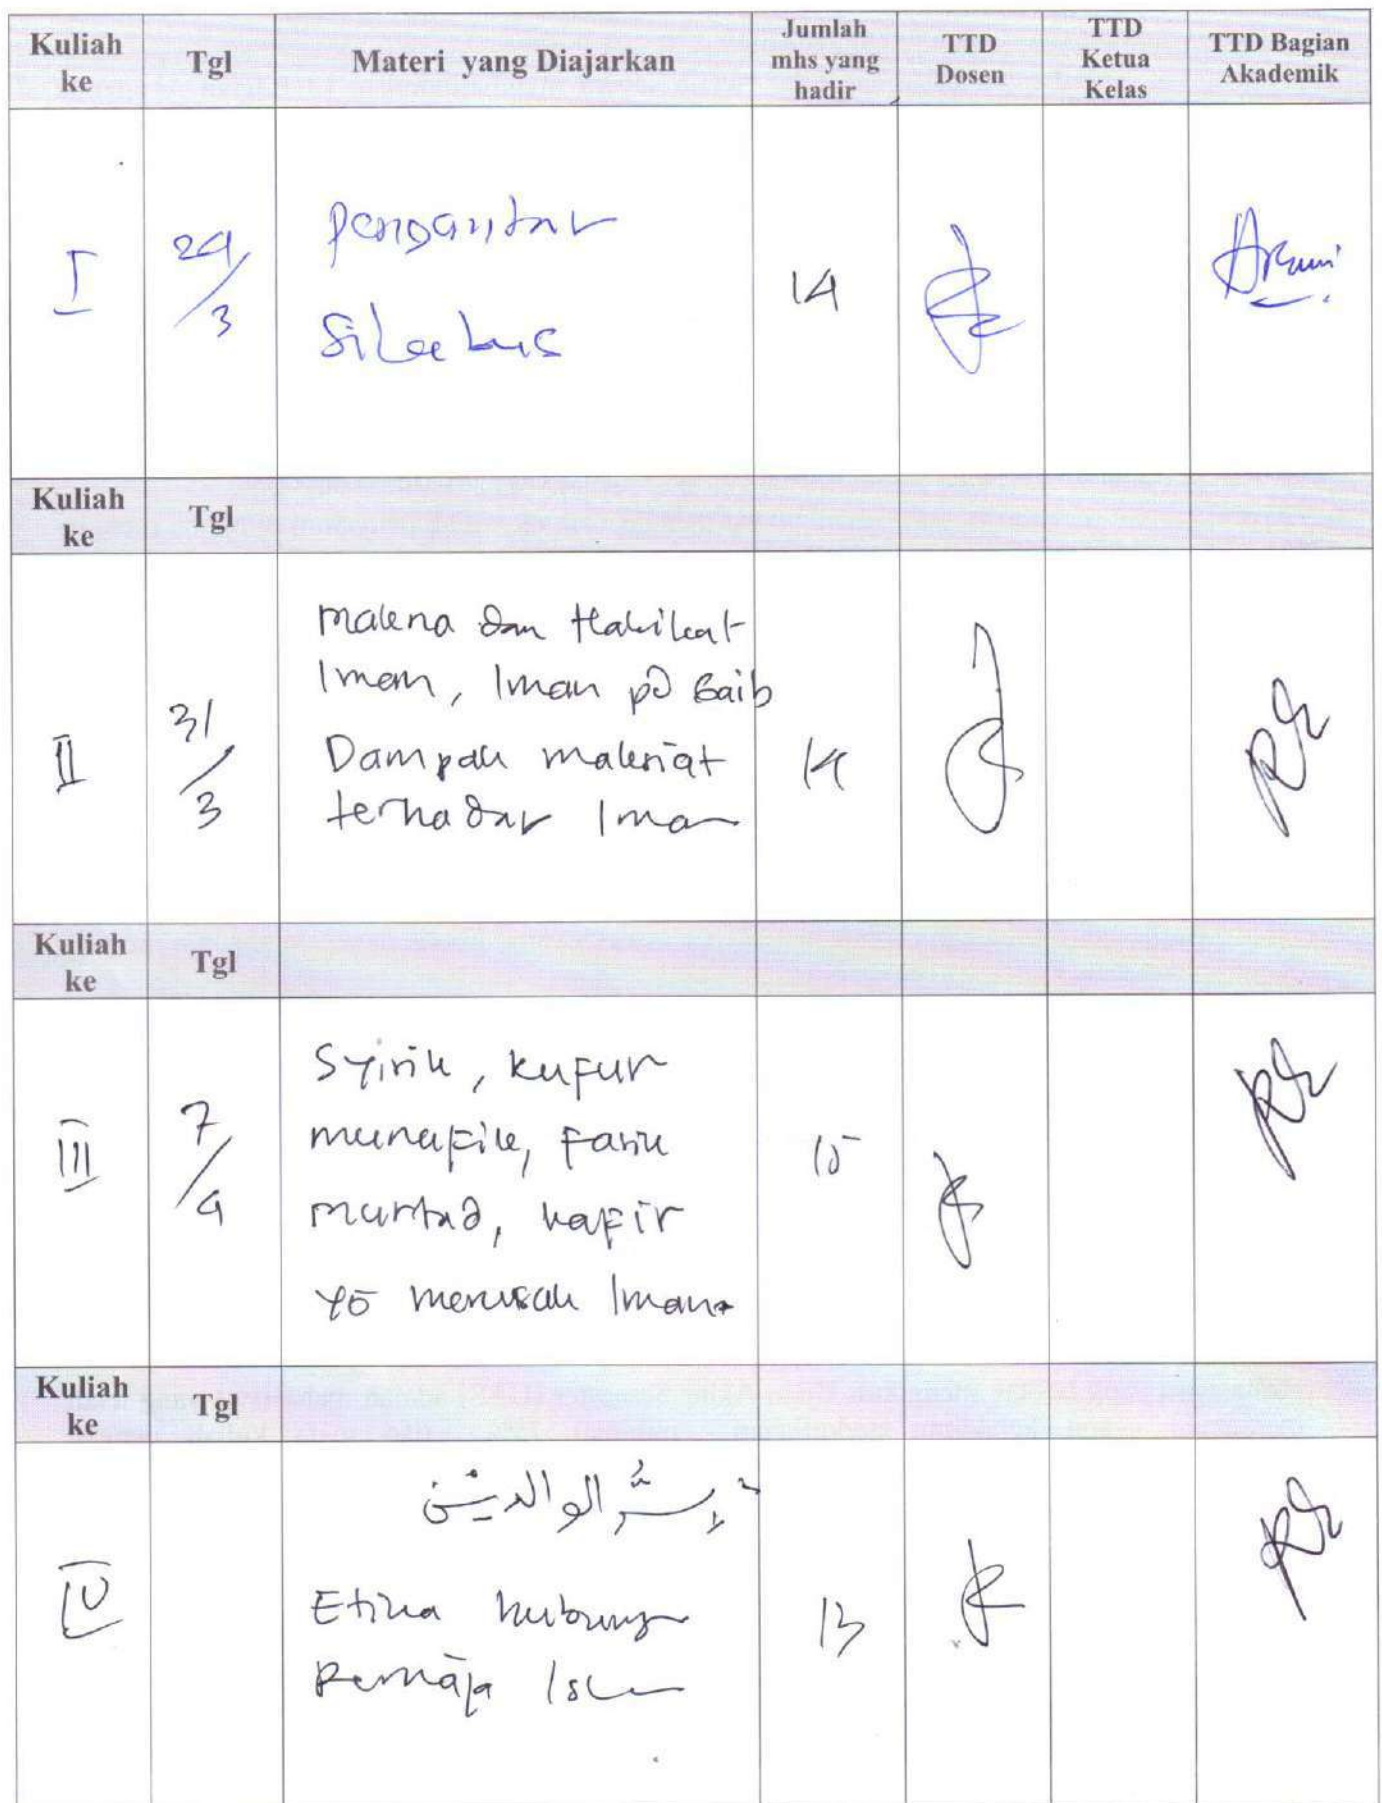 Kuliah ke
Tgl
Materi yang Diajarkan
Jumlah mhs yang hadir
TTD Dosen
TTD Ketua Kelas
TTD Bagian Akademik
I
24/3
Pengantar
Silabus
14
Kuliah ke
Tgl
II
31/3
Makna dan Hakikat
Iman, Iman pd Gaib
Dampak maksiat
terhadap Iman
14
Kuliah ke
Tgl
III
7/4
Syirik, kufur
munafik, Fasik
murtad, kafir
yg merusak Iman
15
Kuliah ke
Tgl
IV
الوالدين
Etika hubungan
Remaja Islam
13